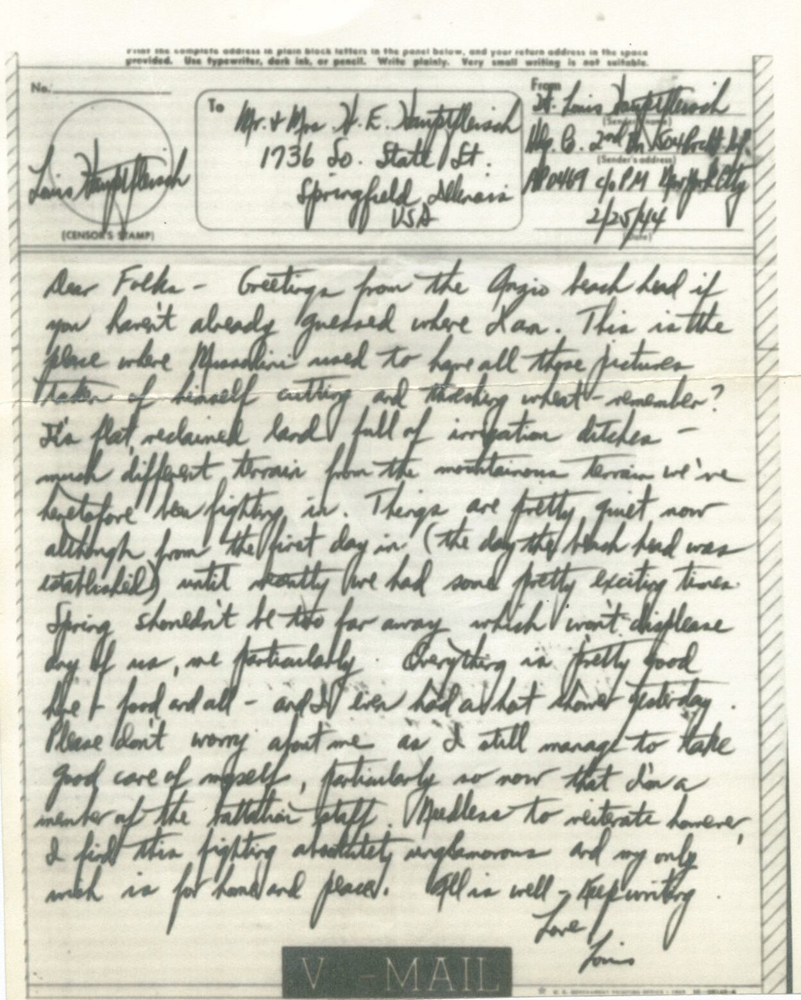 Print the complete address in plain block letters in the panel below, and your return address in the space
provided. Use typewriter, dark ink, or pencil. Write plainly. Very small writing is not suitable.
No.
To
Mr. & Mrs. H. E. Hauptfleisch
1736 So. State St.
Springfield, Illinois
USA
From
Lt. Louis Hauptfleisch
(Sender's name)
Hq. Co. 2nd Bn 504 Prcht. Inf.
(Sender's address)
APO 469 c/o PM New York City
2/25/44
(Date)
Louis Hauptfleisch
(CENSOR'S STAMP)
Dear Folks - Greetings from the Anzio beach head if
you haven't already guessed where I am. This is the
place where Mussolini used to have all those pictures
taken of himself cutting and threshing wheat - remember?
It's flat, reclaimed land full of irrigation ditches -
much different terrain from the mountainous terrain we've
heretofore been fighting in. Things are pretty quiet now
although from the first day in (the day the beach head was
established) until recently we had some pretty exciting times.
Spring shouldn't be too far away which won't displease
any of us, me particularly. Everything is pretty good
here - food and all - and I even had a hot shower yesterday.
Please don't worry about me as I still manage to take
good care of myself, particularly so now that I'm a
member of the battalion staff. Needless to reiterate however,
I find this fighting absolutely unglamorous and my only
wish is for home and peace. All is well - Keep writing.
Love
Louis
V-MAIL